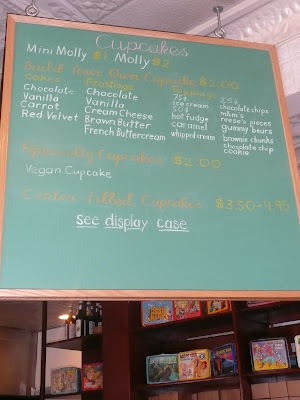 Cupcakes
Mini Molly $1 Molly $2
Build Your Own Cupcake $2.00
Cakes
Chocolate
Vanilla
Carrot
Red Velvet
Frostings
Chocolate
Vanilla
Cream Cheese
Brown Butter
French Buttercream
Toppings
75¢
ice cream
50¢
hot fudge
caramel
whipped cream
25¢
chocolate chips
m&m's
reese's pieces
gummy bears
brownie chunks
chocolate chip
cookie
Specialty Cupcakes: $2.00
Vegan Cupcake
Center Filled Cupcakes: $3.50-4.95
see display case